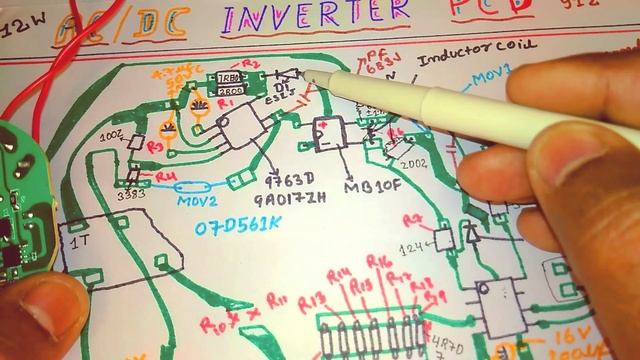 12W AC/DC INVERTER PCB 912
4.7µFC
R2
1R80
2R00
D1
ES2J
PF
683J
Inductor coil
MOV1
R1
100Ω
R3
R4
3383
MOV2
07D561K
9763D
9A017ZH
MB10F
R6
2002
1T
R7
124
R10
R11
R13
R14
R15
R16
R17
R18
R19
4R70
16V